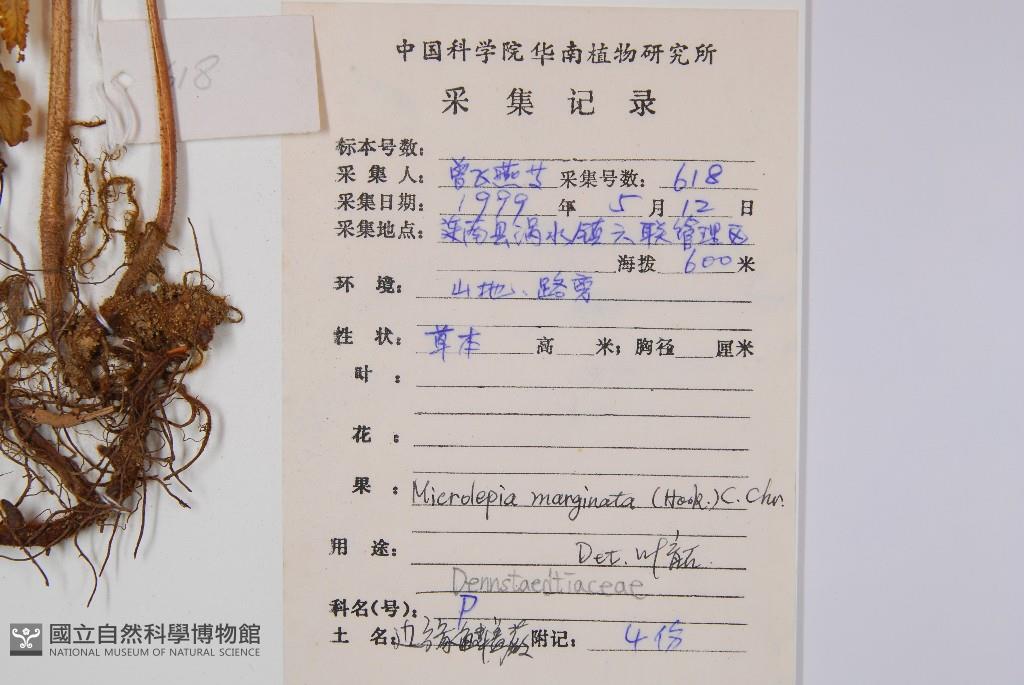 618
中国科学院华南植物研究所
采集记录
标本号数:
采集人: 曾飞燕等 采集号数: 618
采集日期: 1999 年 5 月 12 日
采集地点: 连南县涡水镇六联管理区
海拨 600 米
环境: 山地、路旁
性状: 草本 高 米; 胸径 厘米
叶:
花:
果: Microlepia marginata (Hook.) C. Chr.
用途: Det. 叶
Dennstaedtiaceae
科名(号): P
土名: 边缘鳞盖蕨 附记: 4份
國立自然科學博物館
NATIONAL MUSEUM OF NATURAL SCIENCE